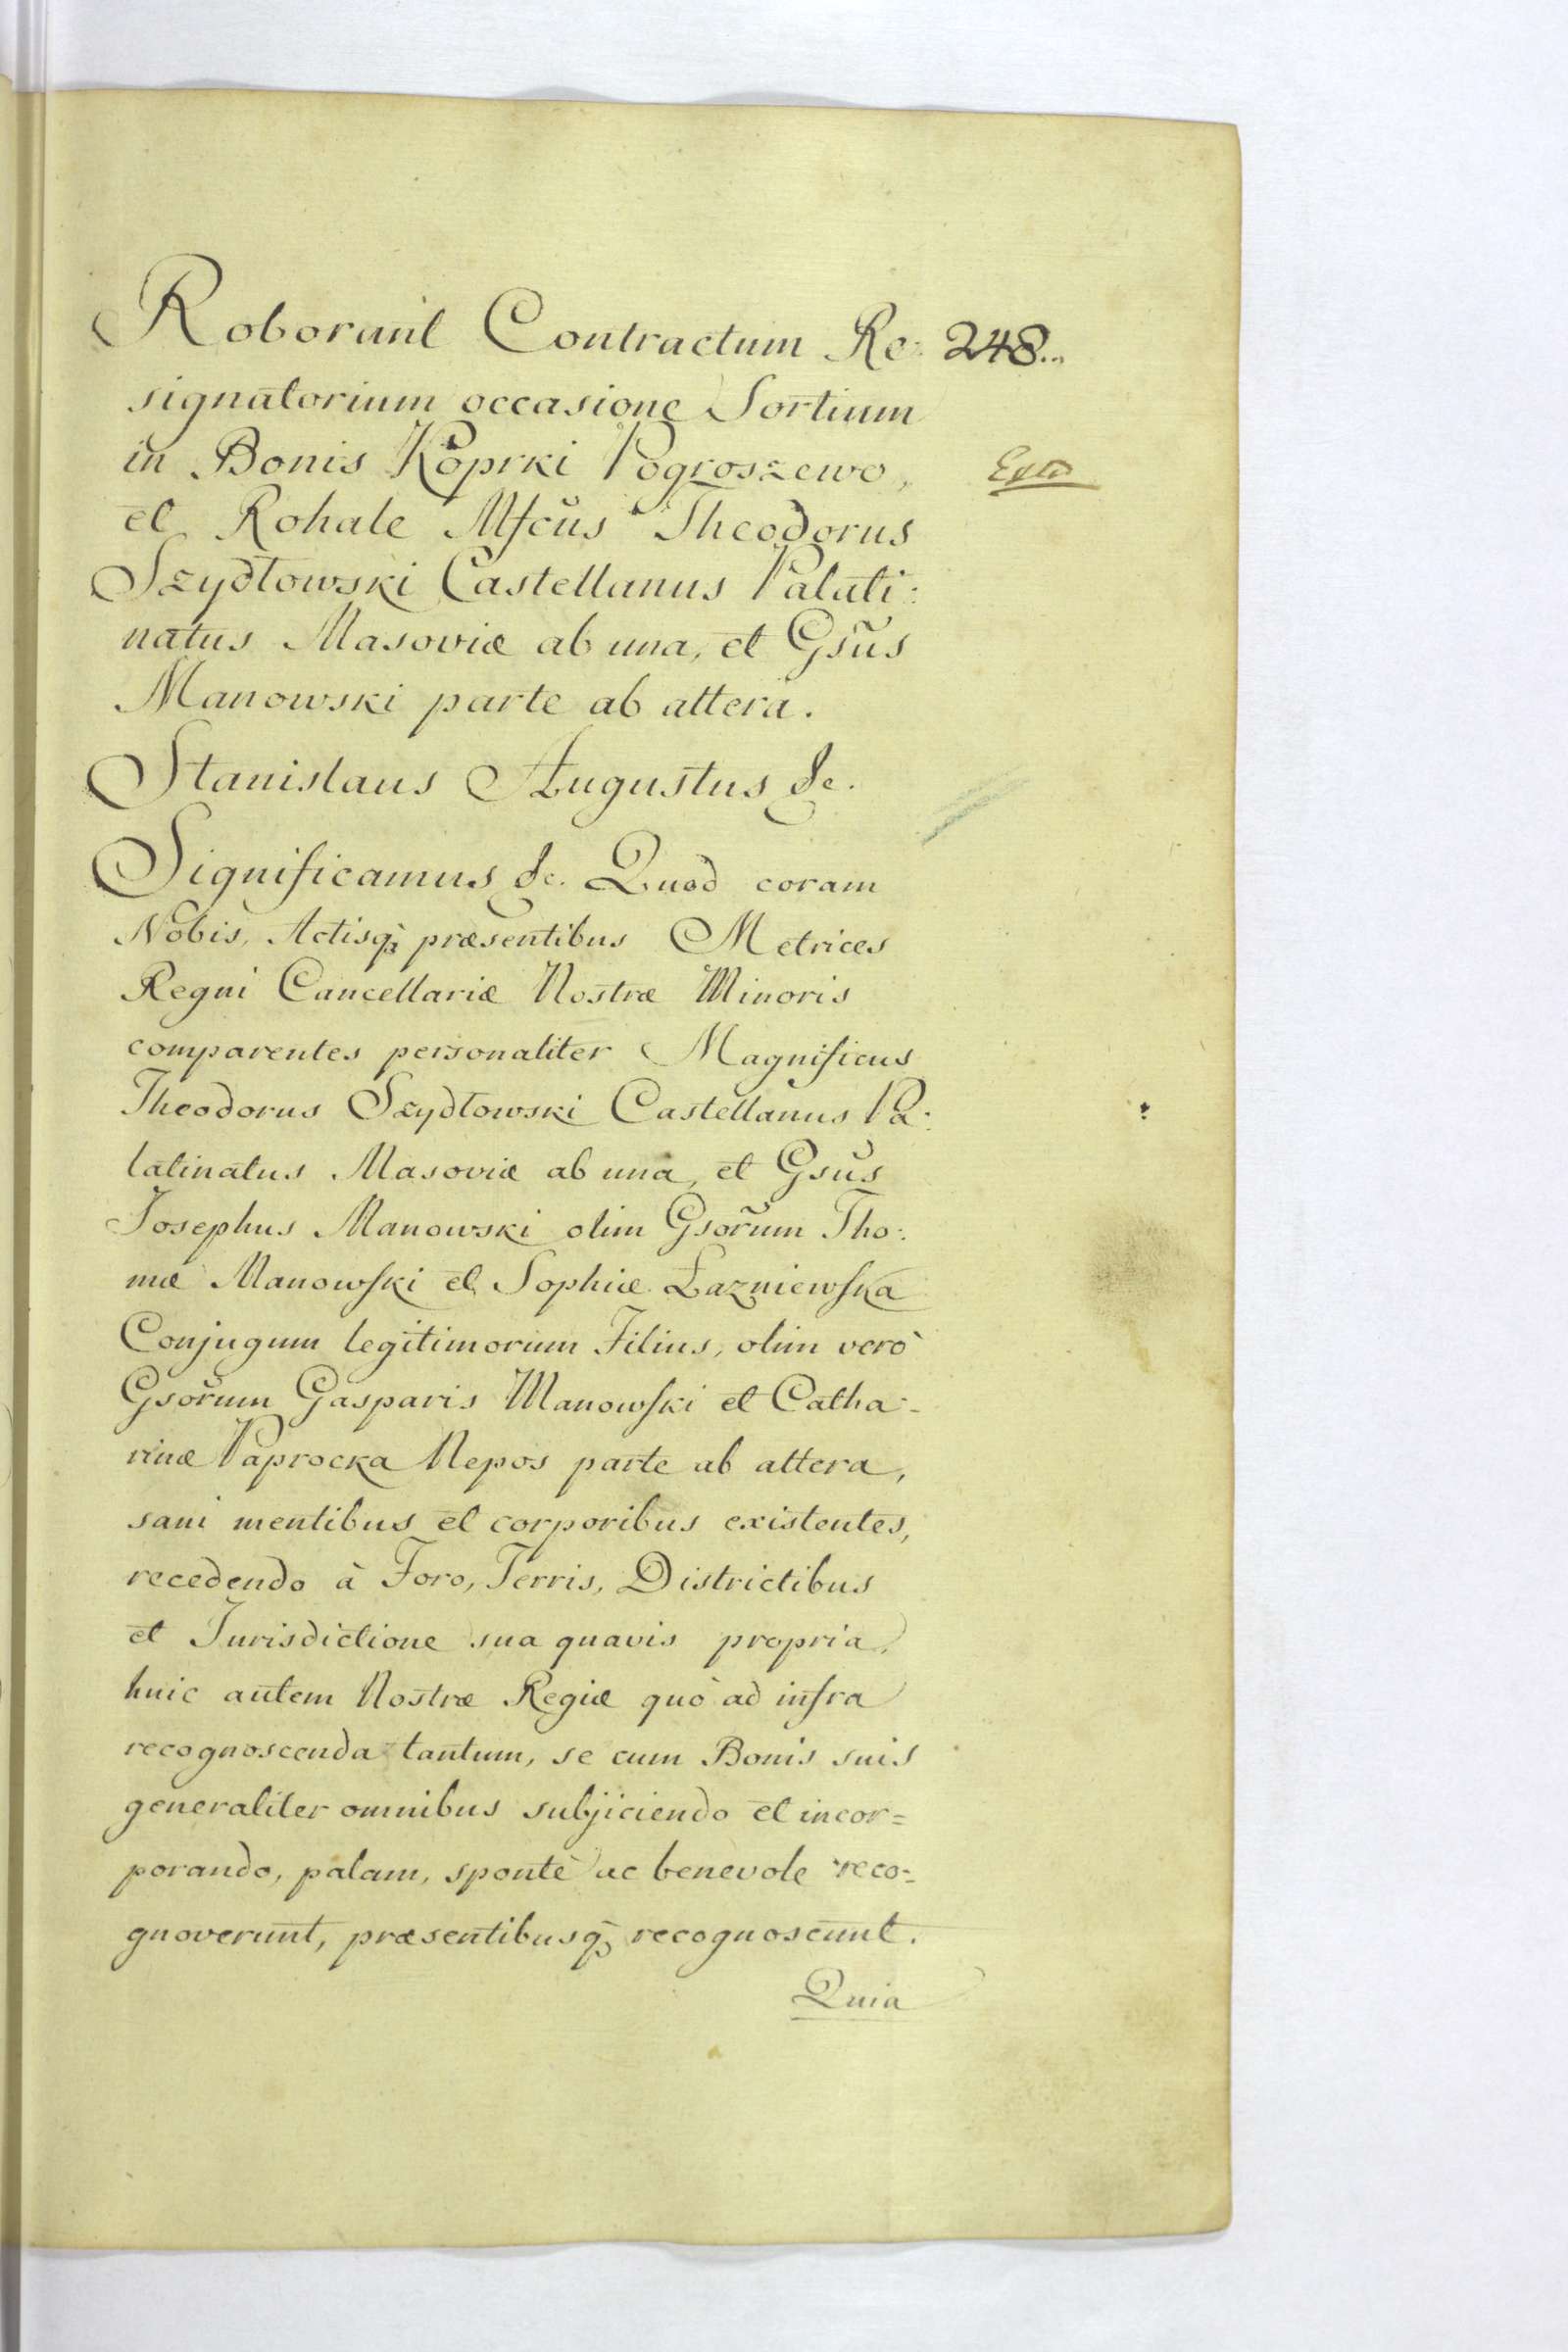 Roborant Contractum Re: 248...
signatorium occasione Sortium
in Bonis Koprki Pogroszewo,
et Rohale Mfcus Theodorus
Szydłowski Castellanus Palati:
natus Masoviæ ab una, et Gsus
Manowski parte ab altera.
Stanislaus Augustus &c.
Significamus &c. Quod coram
Nobis, Actisq; præsentibus Metrices
Regni Cancellariæ Nostræ Minoris
comparentes personaliter Magnificus
Theodorus Szydłowski Castellanus Pa:
latinatus Masoviæ ab una, et Gsus
Josephus Manowski olim Gsorum Tho:
mæ Manowski et Sophiæ Łazniewska
Conjugum legitimorum Filius, olim verò
Gsorum Gasparis Manowski et Catha-
rinæ Paprocka Nepos parte ab altera,
sani mentibus et corporibus existentes,
recedendo à Foro, Terris, Districtibus
et Jurisdictione sua quavis propria,
huic autem Nostræ Regiæ quò ad infra
recognoscenda tantum, se cum Bonis suis
generaliter omnibus subjiciendo et incor=
porando, palam, sponte ac benevole reco=
gnoverunt, præsentibusq; recognoscunt.
Quia